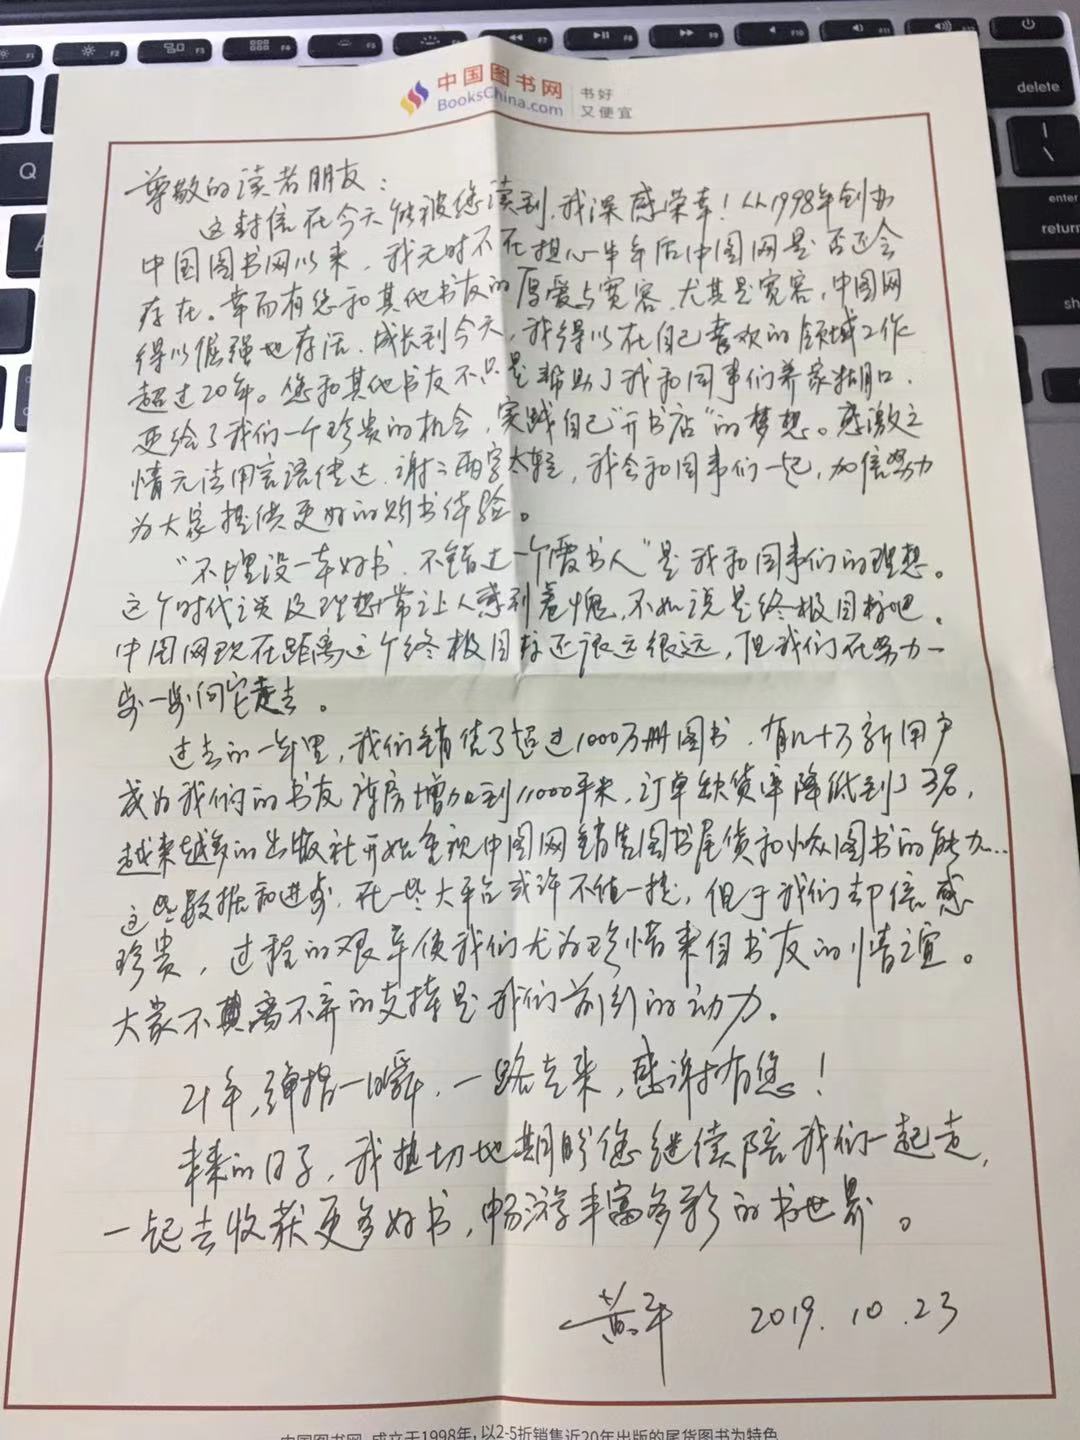 F3
F4
F5
F7
F8
F9
F10
F11
delete
Q
A
\
enter
return
sh
中国图书网
BooksChina.com
书好
又便宜
尊敬的读者朋友：
这封信在今天能被您读到，我深感荣幸！从1998年创办
中国图书网以来，我无时不在担心半年后中图网是否还会
存在。幸而有您和其他书友的厚爱与宽容，尤其是宽容，中图网
得以倔强地存活、成长到今天，我得以在自己喜欢的领域工作
超过20年。您和其他书友不只是帮助了我和同事们养家糊口，
更给了我们一个珍贵的机会，实践自己“开书店”的梦想。感激之
情无法用言语传达，谢谢两字太轻，我会和同事们一起，加倍努力
为大家提供更好的购书体验。
“不埋没一本好书，不错过一个爱书人”是我和同事们的理想。
这个时代谈及理想常让人感到羞愧，不如说是终极目标吧。
中图网现在距离这个终极目标还很远很远，但我们在努力一
步一步向它走去。
过去的一年里，我们销售了超过1000万册图书，有几十万新用户
成为我们的书友，库房增加到11000平米，订单缺货率降低到了3%，
越来越多的出版社开始重视中图网销售图书尾货和小众图书的能力…
这些数据和进步，在一些大平台或许不值一提，但于我们却倍感
珍贵，过程的艰辛使我们尤为珍惜来自书友的情谊。
大家不离不弃的支持是我们前行的动力。
21年，弹指一瞬，一路走来，感谢有您！
未来的日子，我热切地期盼您继续陪我们一起走，
一起去收获更多好书，畅游丰富多彩的书世界。
黄平 2019.10.23
中国图书网 成立于1998年，以2-5折销售近20年出版的尾货图书为特色